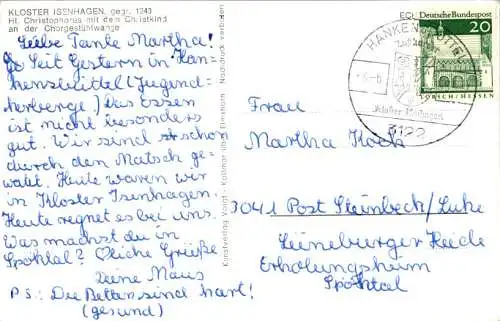 KLOSTER ISENHAGEN, gegr. 1243
Hl. Christophorus mit dem Christkind
an der Chorgestühlwange
Liebe Tante Martha!
Seit Gestern in Han-
kensbüttel (Jugend-
herberge) Das Essen
ist nicht besonders
gut. Wir sind schon
durch den Matsch ge-
watet. Heute waren wir
in Kloster Isenhagen.
Heute regnet es bei uns.
Was machst du in
Spöktal? Grüße
Deine Maus
PS: Die Betten sind hart!
(gesund)
Kunstverlag Voigt
Nachdruck verboten
Deutsche Bundespost
20
LORSCH/HESSEN
Kloster Isenhagen
3122
Frau
Martha Koch
3041 Post Steinbeck/Luhe
Lüneburger Heide
Erholungsheim
Spöktal